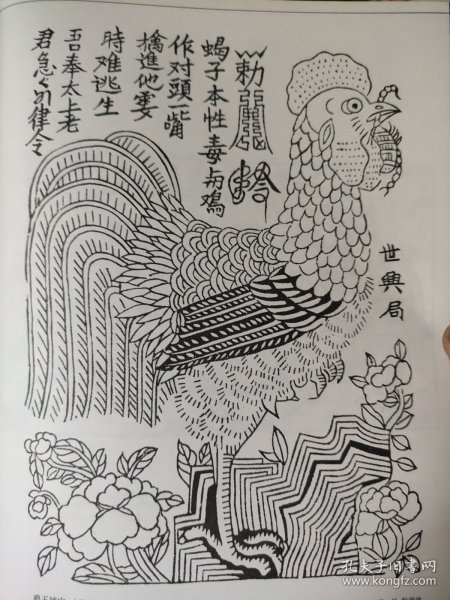 勅
蝎子本性毒与鸡
作对頭一嘴
擒進他霎
時难逃生
吾奉太上老
君急々如律令
世興局
孔夫子旧书网
www.kongfz.com